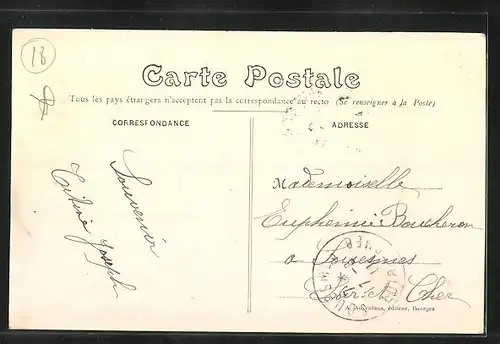 18
Carte Postale
Tous les pays étrangers n'acceptent pas la correspondance au recto (Se renseigner à la Poste)
CORRESPONDANCE
ADRESSE
Souvenir
Joseph
Mademoiselle
Euphemie Boucheron
a Souesmes
Loir et Cher
éditeur, Bourges